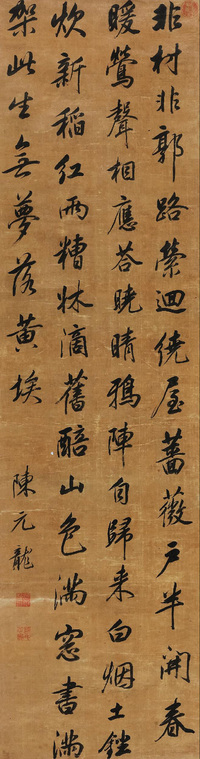 非村非郭路縈迴繞屋薔薇戶半開春
暖鶯聲相應荅晩晴鴉陣自歸来白烟土銼
炊新稲紅雨糟牀滴舊醅山色滿窓書滿
架此生無夢落黃埃
陳元龍